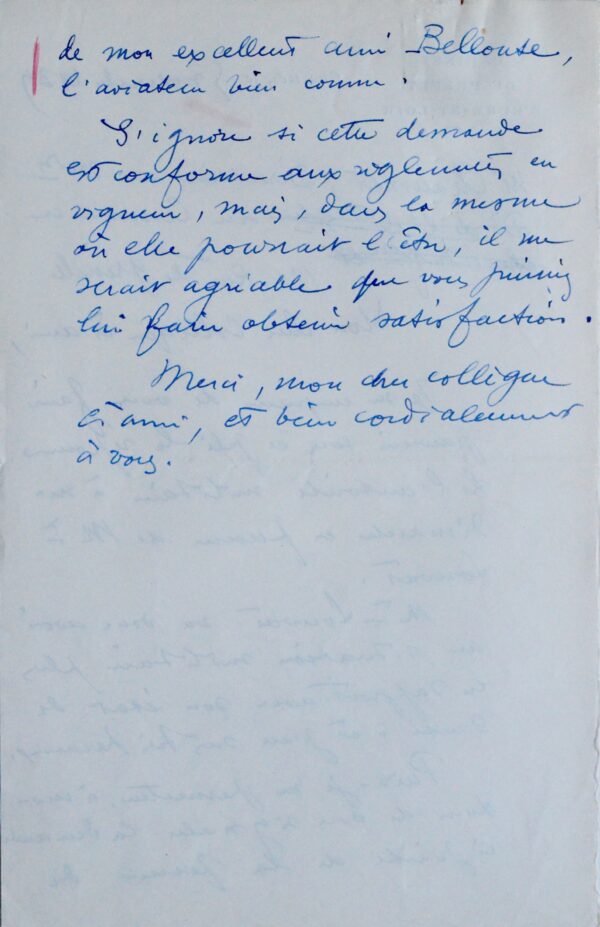 de mon excellent ami Bellonte,
l'aviateur bien connu.
J'ignore si cette demande
est conforme aux règlements en
vigueur, mais, dans la mesure
où elle pourrait l'être, il me
serait agréable que vous puissiez
lui faire obtenir satisfaction.
Merci, mon cher collègue
et ami, et bien cordialement
à vous.